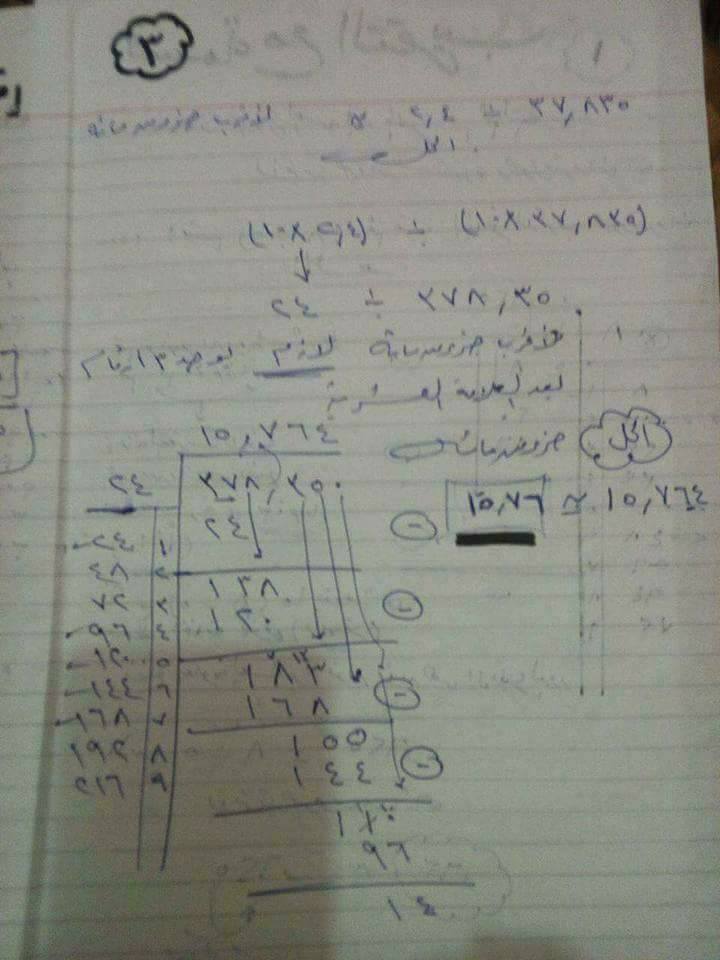 ٣
٣٧,٨٣٥ ÷ ٢,٤ ≈ لأقرب جزء من مائة
الحل
(٣٧,٨٣٥ × ١٠) ÷ (٢,٤ × ١٠)
٣٧٨,٣٥ ÷ ٢٤
لأقرب جزء من مائة لازم يوجد ٣ أرقام
بعد العلامة العشرية
الحل جزء من مائة
١٥,٧٦٤ ≈ ١٥,٧٦
١٥,٧٦٤
٢٤ ٣٧٨,٣٥٠
٢٤ -
١٣٨
١٢٠ -
١٨٣
١٦٨ -
١٥٥
١٤٤ -
١١٠
٩٦
١٤
١ ٢٤
٢ ٤٨
٣ ٧٢
٤ ٩٦
٥ ١٢٠
٦ ١٤٤
٧ ١٦٨
٨ ١٩٢
٩ ٢١٦